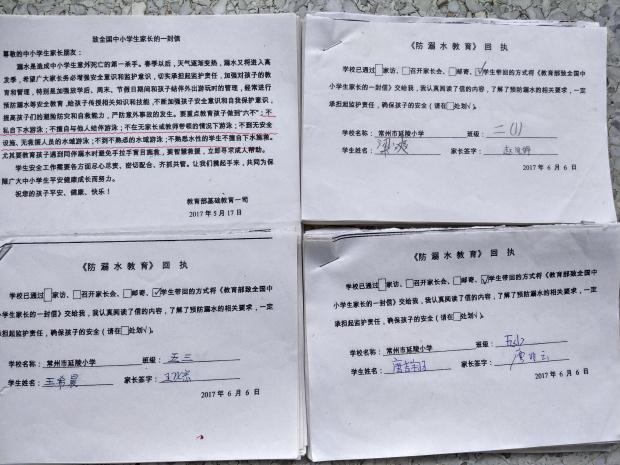 致全国中小学生家长的一封信
尊敬的中小学生家长朋友：
溺水是造成中小学生意外死亡的第一杀手。春季以后，天气逐渐变热，溺水又将进入高
发季，希望广大家长务必增强安全意识和监护意识，切实承担起监护责任，加强对孩子的教
育和管理，特别是加强放学后、周末、节假日期间和孩子结伴外出游玩时的管理，经常进行
预防溺水等安全教育，给孩子传授相关知识和技能，不断加强孩子安全意识和自我保护意识，
提高孩子们的避险防灾和自救能力，严防意外事故的发生。要重点教育孩子做到“六不”：不
私自下水游泳；不擅自与他人结伴游泳；不在无家长或教师带领的情况下游泳；不到无安全
设施、无救援人员的水域游泳；不到不熟悉的水域游泳；不熟悉水性的学生不擅自下水施救。
尤其要教育孩子遇到同伴溺水时避免手拉手盲目施救，要智慧救援，立即寻求成人帮助。
学生安全工作需要各方面尽心尽责、密切配合、齐抓共管。让我们携起手来，共同为保
障广大中小学生平安健康成长而努力。
祝您的孩子平安、健康、快乐！
教育部基础教育一司
2017年5月17日
《防溺水教育》回执
学校已通过□家访、□召开家长会、□邮寄、☑学生带回的方式将《教育部致全国中
小学生家长的一封信》交给我，我认真阅读了信的内容，了解了预防溺水的相关要求，一定
承担起监护责任，确保孩子的安全（请在□处划√）。
学校名称：常州市延陵小学 班级：二(1)
学生姓名： 家长签字：
2017年6月6日
《防溺水教育》回执
学校已通过□家访、□召开家长会、□邮寄、☑学生带回的方式将《教育部致全国中
小学生家长的一封信》交给我，我认真阅读了信的内容，了解了预防溺水的相关要求，一定
承担起监护责任，确保孩子的安全（请在□处划√）。
学校名称：常州市延陵小学 班级：五三
学生姓名：王希晨 家长签字：
2017年6月6日
《防溺水教育》回执
学校已通过□家访、□召开家长会、□邮寄、☑学生带回的方式将《教育部致全国中
小学生家长的一封信》交给我，我认真阅读了信的内容，了解了预防溺水的相关要求，一定
承担起监护责任，确保孩子的安全（请在□处划√）。
学校名称：常州市延陵小学 班级：
学生姓名： 家长签字：
2017年6月6日